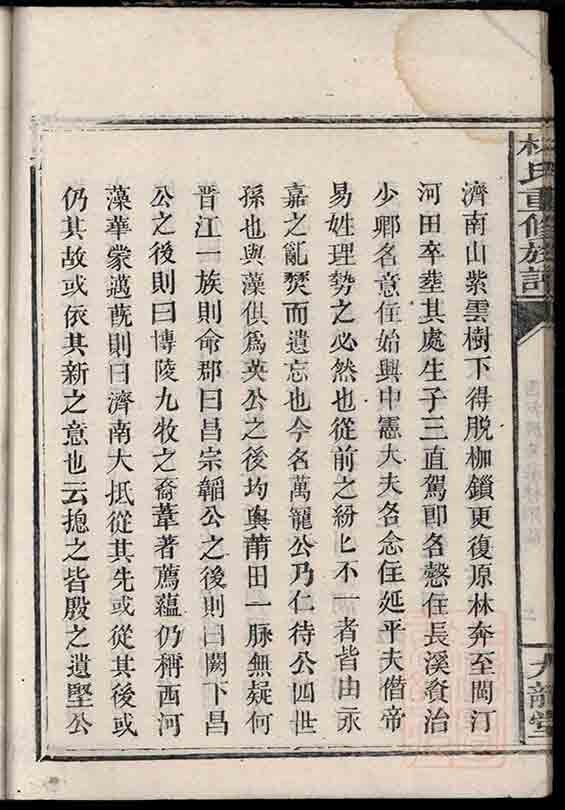 林氏重修族譜
九龍堂
濟南山紫雲樹下得脫枷鎖更復原林奔至閩汀
河田卒塟其處生子三直駕卽名慤住長溪資治
少卿名意住始興中憲大夫名念住延平夫僭帝
易姓理勢之必然也從前之紛匕不一者皆由永
嘉之亂焚而遺忘也今名萬寵公乃仁待公四世
孫也與藻俱爲英公之後均與莆田一脉無疑何
晋江一族則命郡曰昌宗韜公之後則曰闕下昌
公之後則曰博陵九牧之裔葦著薦蘊仍稱西河
藻華蒙邁蔇則曰濟南大抵從其先或從其後或
仍其故或依其新之意也云揔之皆殷之遺堅公